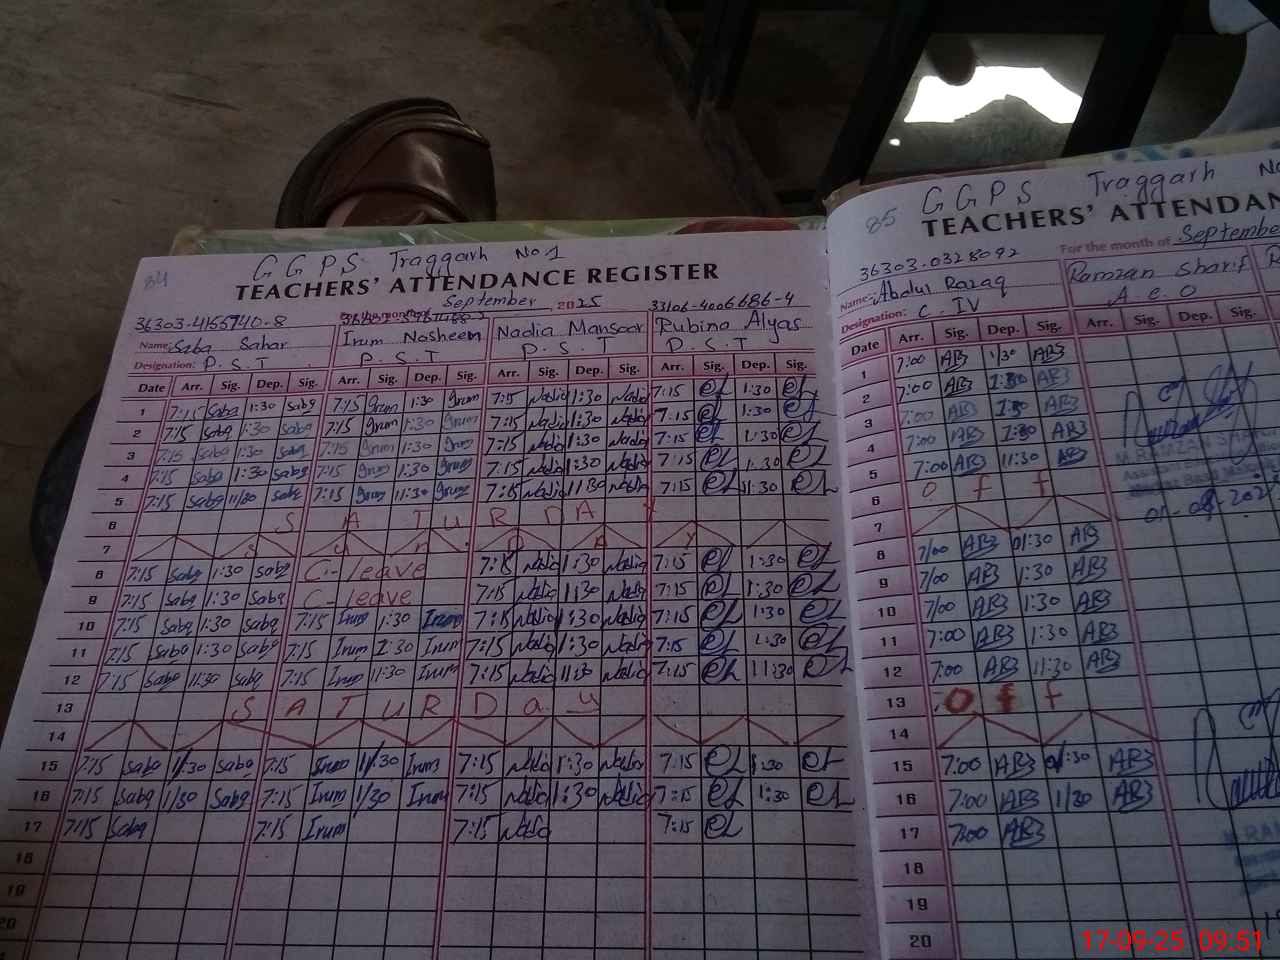 84
G G P S Traggarh No 1
TEACHERS' ATTENDANCE REGISTER
September, 2025
36303-4165940-8 33106-4006686-4
Name: Saba Sahar Irum Nosheen Nadia Mansoor Rubina Alyas
Designation: P. S. T P. S. T P. S. T P. S. T
Date Arr. Sig. Dep. Sig. Arr. Sig. Dep. Sig. Arr. Sig. Dep. Sig. Arr. Sig. Dep. Sig.
1 7:15 Saba 1:30 Saba 7:15 Irum 1:30 Irum 7:15 Nadia 1:30 Nadia 7:15 1:30
2 7:15 Saba 1:30 Saba 7:15 Irum 1:30 Irum 7:15 Nadia 1:30 Nadia 7:15 1:30
3 7:15 Saba 1:30 Saba 7:15 Irum 1:30 Irum 7:15 Nadia 1:30 Nadia 7:15 1:30
4 7:15 Saba 1:30 Saba 7:15 Irum 1:30 Irum 7:15 Nadia 1:30 Nadia 7:15 1:30
5 7:15 Saba 11:30 Saba 7:15 Irum 11:30 Irum 7:15 Nadia 11:30 Nadia 7:15 11:30
6 S A T U R D A Y
7 S u n D A Y
8 7:15 Saba 1:30 Saba C-leave 7:15 Nadia 1:30 Nadia 7:15 1:30
9 7:15 Saba 1:30 Saba C-leave 7:15 Nadia 1:30 Nadia 7:15 1:30
10 7:15 Saba 1:30 Saba 7:15 Irum 1:30 Irum 7:15 Nadia 1:30 Nadia 7:15 1:30
11 7:15 Saba 1:30 Saba 7:15 Irum 1:30 Irum 7:15 Nadia 1:30 Nadia 7:15 1:30
12 7:15 Saba 11:30 Saba 7:15 Irum 11:30 Irum 7:15 Nadia 11:30 Nadia 7:15 11:30
13 S A T U R D a y
14
15 7:15 Saba 1/:30 Saba 7:15 Irum 1/:30 Irum 7:15 Nadia 1:30 Nadia 7:15 1:30
16 7:15 Saba 1/30 Saba 7:15 Irum 1/30 Irum 7:15 Nadia 1:30 Nadia 7:15 1:30
17 7:15 Saba 7:15 Irum 7:15 Nadia 7:15
18
19
20
85
G G P S Traggarh No
TEACHERS' ATTENDAN
For the month of September
36303-0328092
Name: Abdul Razaq Ramzan Sharif
Designation: C. IV A. E. O
Date Arr. Sig. Dep. Sig. Arr. Sig. Dep. Sig.
1 7:00 AB3 1/30 AB3
2 7:00 AB3 1:30 AB3
3 7:00 AB3 1:30 AB3
4 7:00 AB3 1:30 AB3
5 7:00 AB3 11:30 AB3
6 O f f
7
8 7/00 AB3 01:30 AB3
9 7/00 AB3 1:30 AB3
10 7/00 AB3 1:30 AB3
11 7:00 AB3 1:30 AB3
12 7:00 AB3 11:30 AB3
13 O f f
14
15 7:00 AB3 01:30 AB3
16 7:00 AB3 1/30 AB3
17 7:00 AB3
18
19
20
17-09-25 09:51